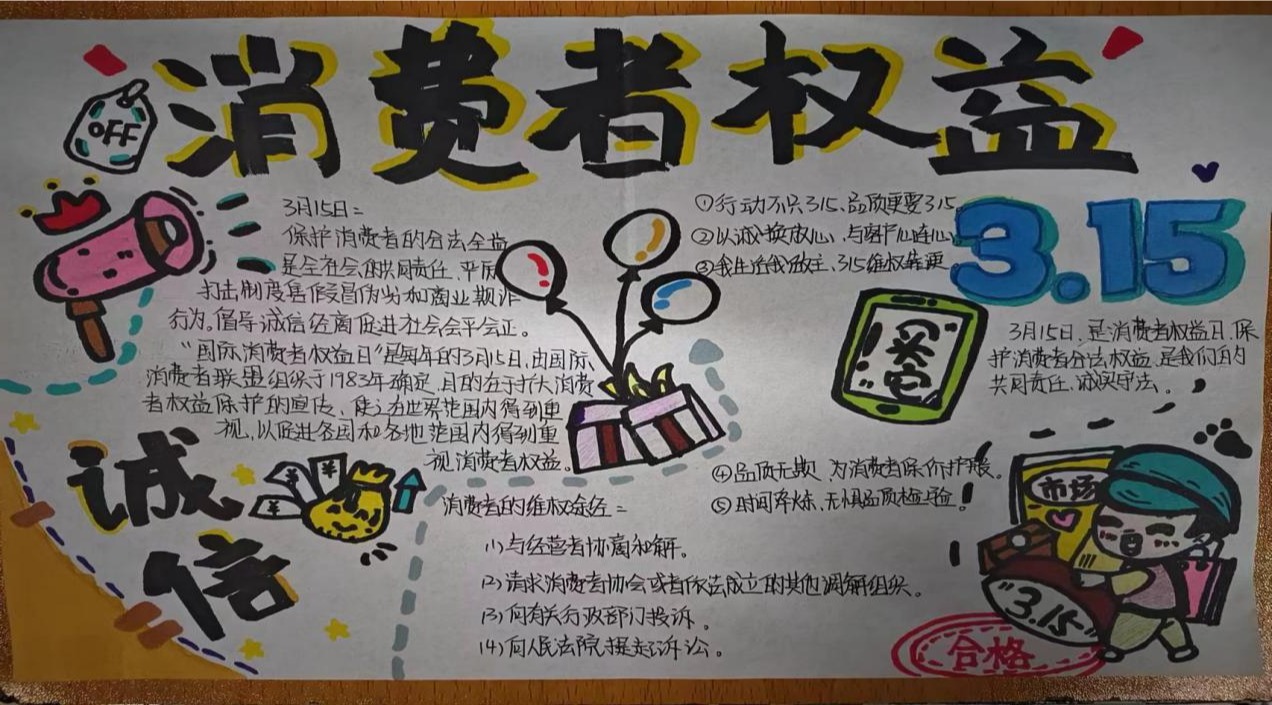 消费者权益
OFF
3月15日：
保护消费者的合法全益
是全社会的共同责任、平历
打击制度售假冒伪劣和商业期诈
行为。倡导诚信经商促进社会会平会正。
“国际消费者权益日”是每年的3月15日，由国际
消费者联盟组织于1983年确定，目的在于扩大消费
者权益保护的宣传，使之在世界范围内得到重
视，以促进各国和各地范围内得到重
视消费者权益。
①行动不只315、品质更要315
②以诚换放心、与客户心连心
③我生活我做主、315维权
3.15
买它
3月15日，是消费者权益日，保
护消费者合法权益，是我们的
共同责任，诚实守法。
诚信
¥
¥
¥
④品质无欺，为消费者保价护航。
⑤时间淬炼、无惧品质检验！
消费者的维权途经：
(1)与经营者协商和解。
(2)请求消费者协会或者依法成立的其他调解组织。
(3)向有关行政部门投诉。
(4)向人民法院提起诉讼。
市场
3.15
合格